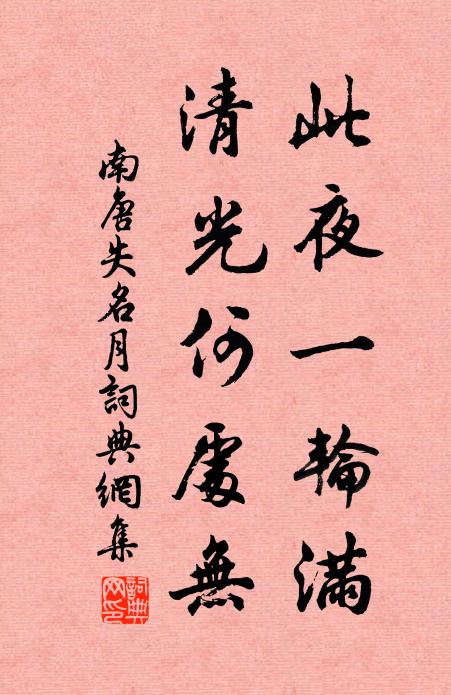 此夜一輪滿
清光何處無
南唐失名月詞典網集
詞典网印